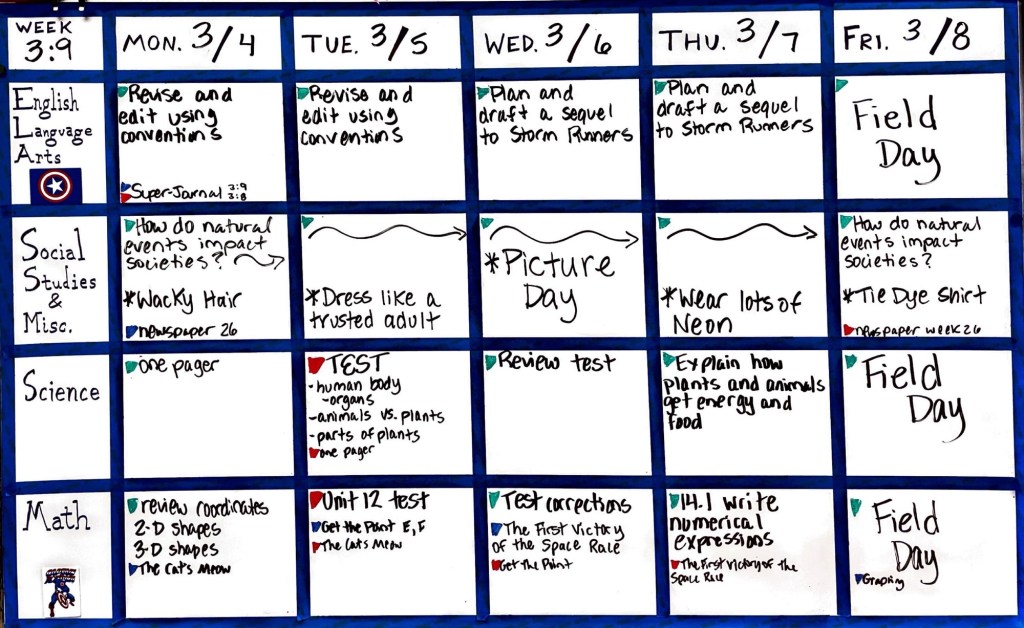 WEEK
3:9
MON. 3/4
TUE. 3/5
WED. 3/6
THU. 3/7
FRI. 3/8
English
Language
Arts
Revise and
edit using
conventions
Super-Journal 3:9
3:8
Revise and
edit using
conventions
Plan and
draft a sequel
to Storm Runners
Plan and
draft a sequel
to Storm Runners
Field
Day
Social
Studies
&
Misc.
How do natural
events impact
societies?
*Wacky Hair
newspaper 26
*Dress like a
trusted adult
*Picture
Day
*Wear lots of
Neon
How do natural
events impact
societies?
*Tie Dye Shirt
newspaper week 26
Science
one pager
TEST
-human body
-organs
-animals vs. plants
-parts of plants
one pager
Review test
Explain how
plants and animals
get energy and
food
Field
Day
Math
review coordinates
2-D shapes
3-D shapes
The Cat's Meow
Unit 12 test
Get the Point E, F
The Cat's Meow
Test corrections
The First Victory
of the Space Race
Get the Point
14.1 Write
numerical
expressions
The First Victory of the
Space Race
Field
Day
Graphing